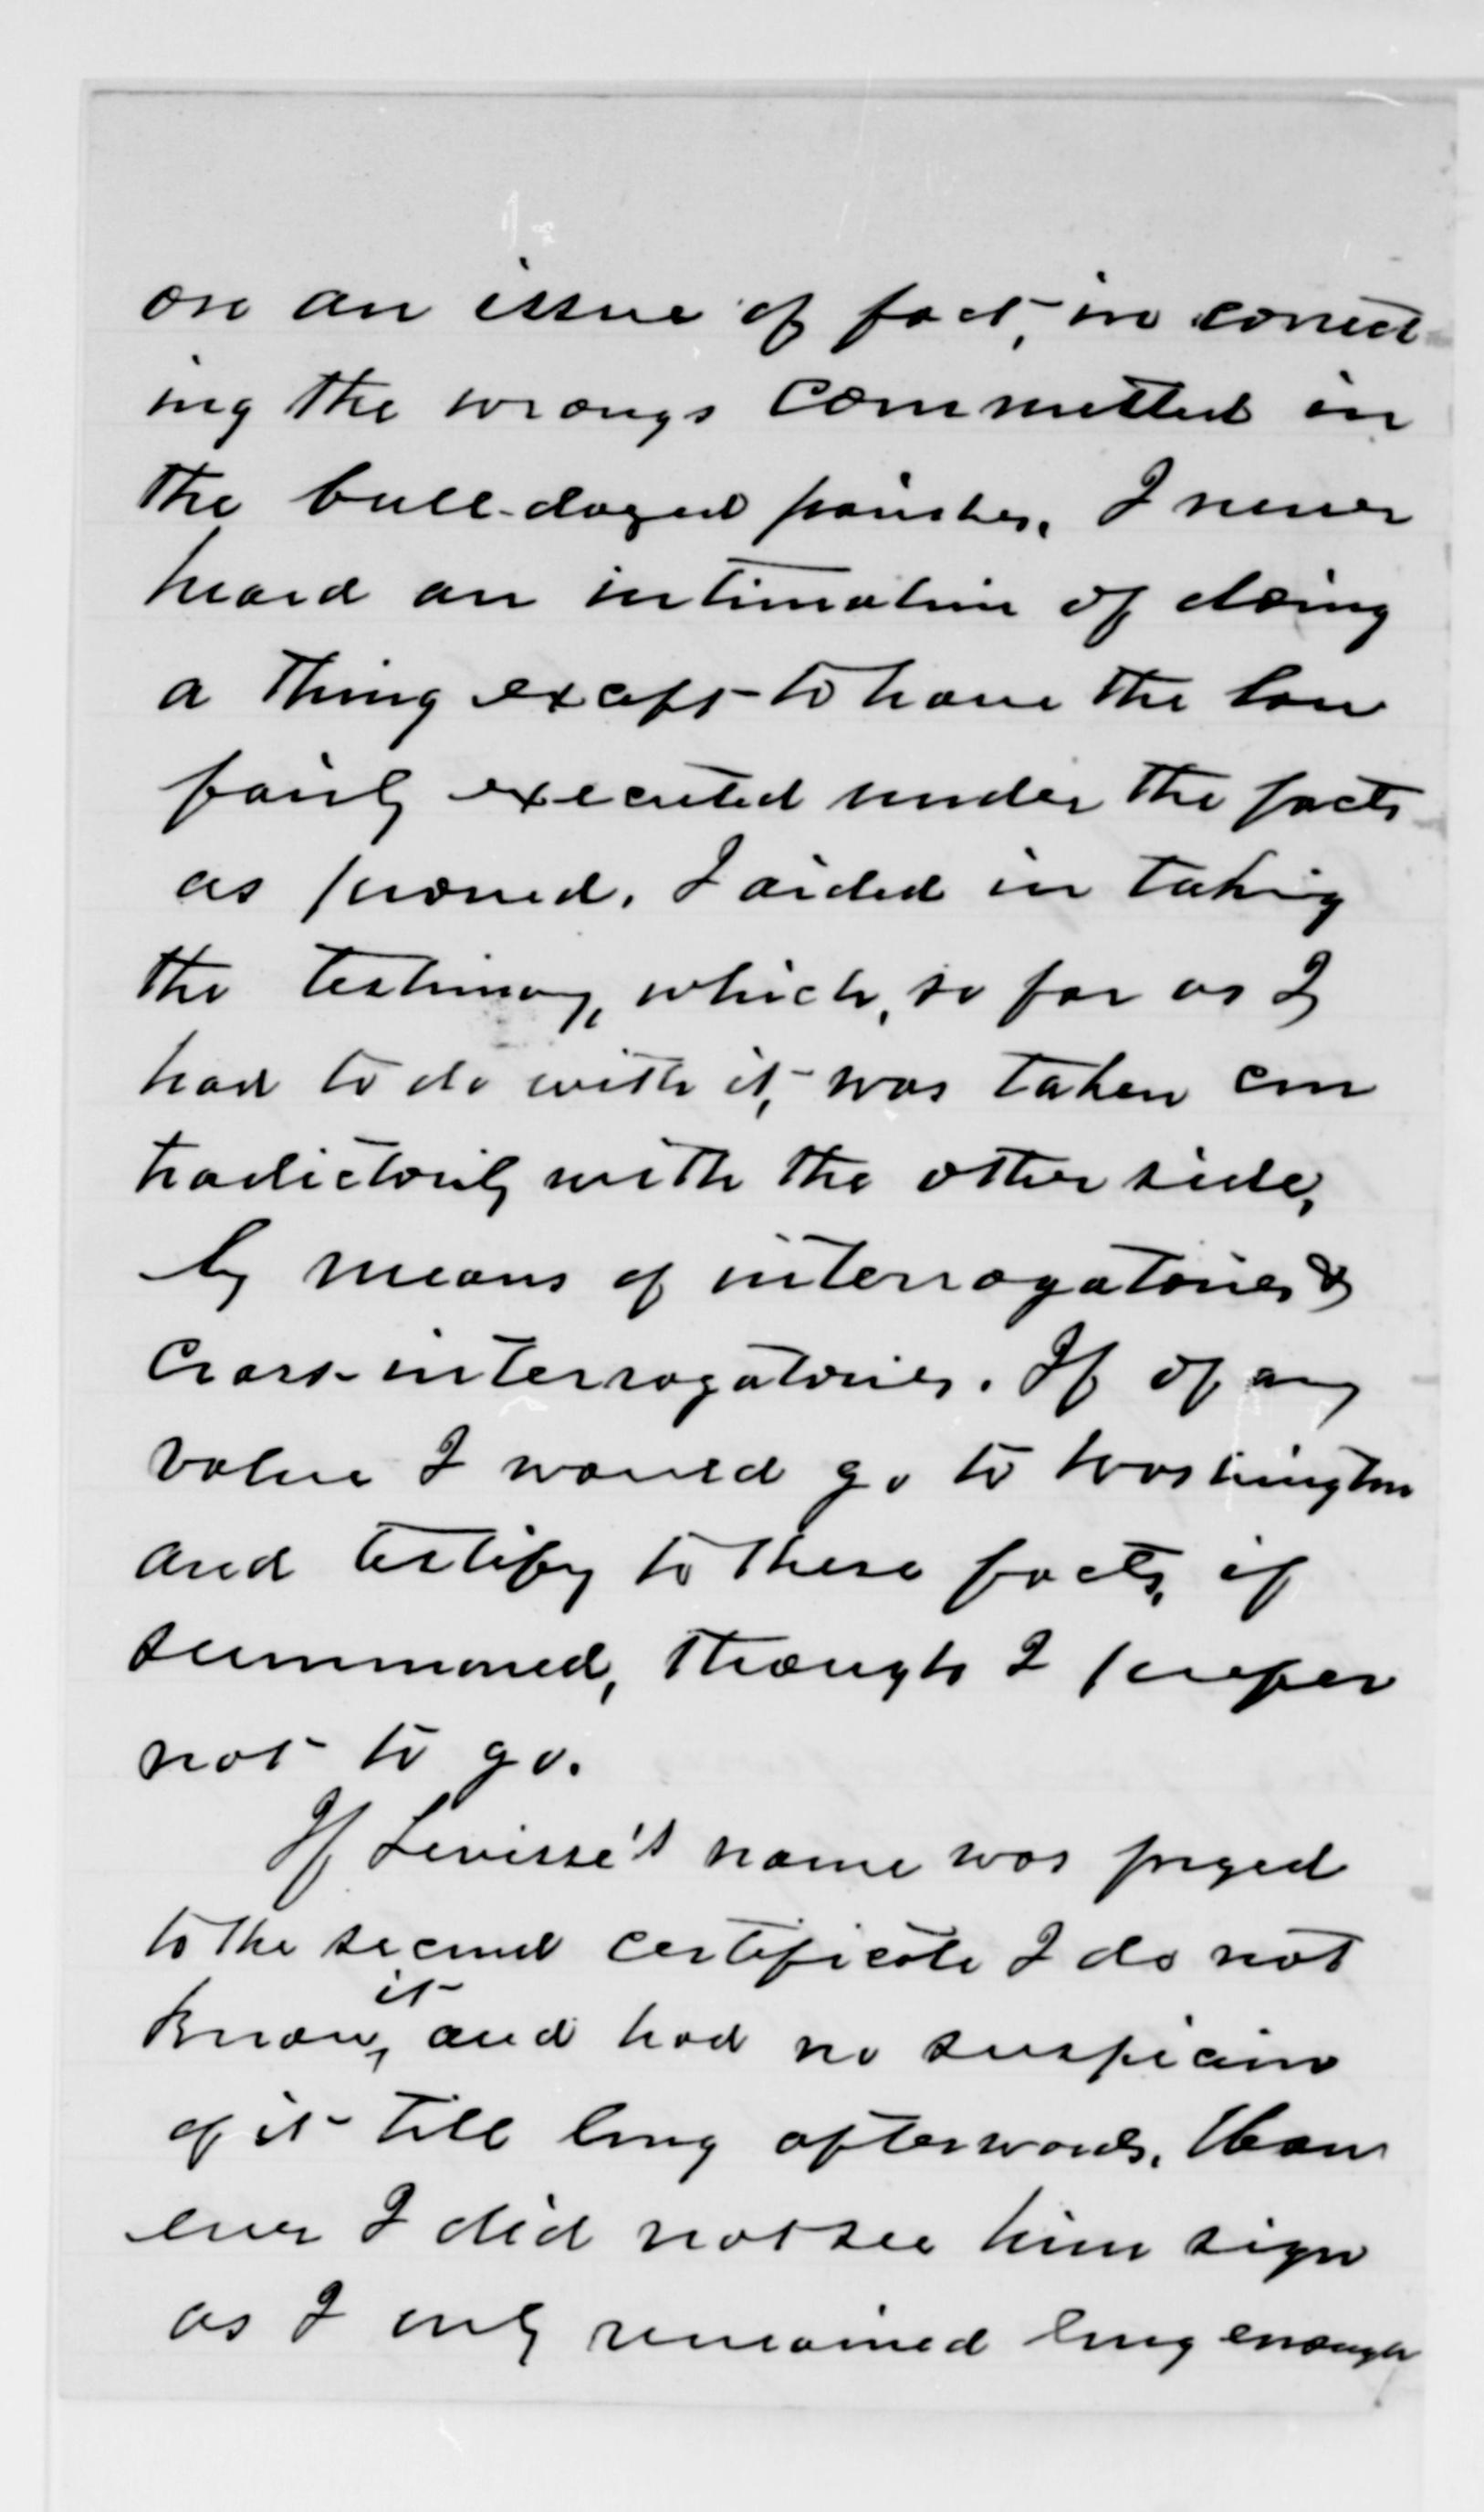 on an issue of fact, in correct
ing the wrongs committed in
the bull-dozed parishes. I never
heard an intimation of doing
a thing except to have the law
fairly executed under the facts
as proved. I aided in taking
the testimony, which, so far as I
had to do with it, was taken con
tradictorily with the other side,
by means of interrogatories &
cross-interrogatories. If of any
value I would go to Washington
and testify to these facts, if
summoned, though I prefer
not to go.
If Levisse's name was forged
to the second certificate I do not
know it, and had no suspicion
of it till long afterwards. How
ever I did not see him sign
as I only remained long enough